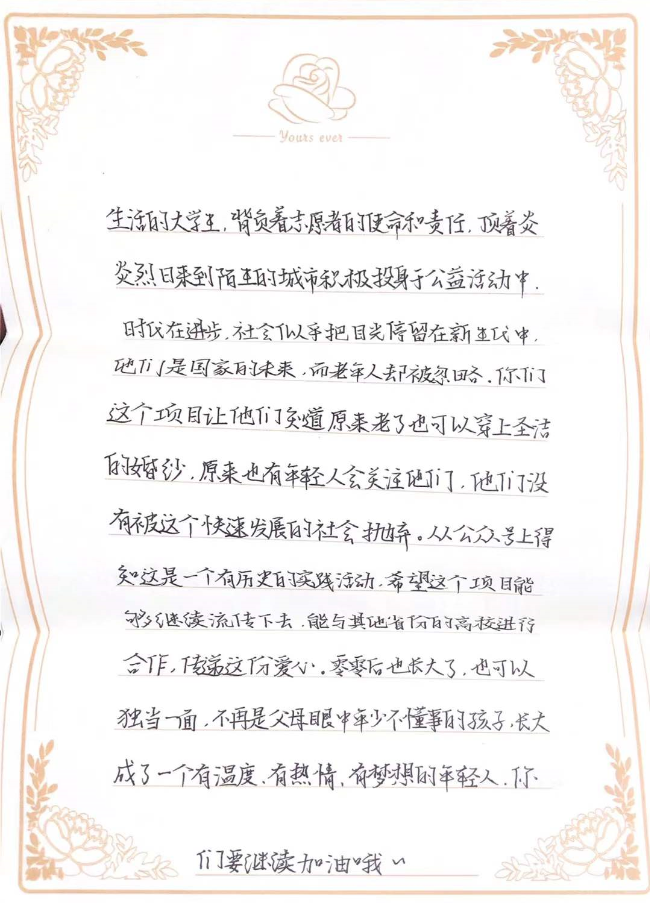 Yours ever
生活的大学生，背负着志愿者的使命和责任，顶着炎
炎烈日来到陌生的城市积极投身于公益活动中．
时代在进步，社会似乎把目光停留在新生代中，
他们是国家的未来，而老年人却被忽略．你们
这个项目让他们知道原来老了也可以穿上圣洁
的婚纱，原来也有年轻人会关注他们，他们没
有被这个快速发展的社会抛弃。从公众号上得
知这是一个有历史的实践活动，希望这个项目能
够继续流传下去，能与其他省份的高校进行
合作，传递这份爱心。零零后也长大了，也可以
独当一面，不再是父母眼中年少不懂事的孩子，长大
成了一个有温度、有热情、有梦想的年轻人．你
们要继续加油哦～